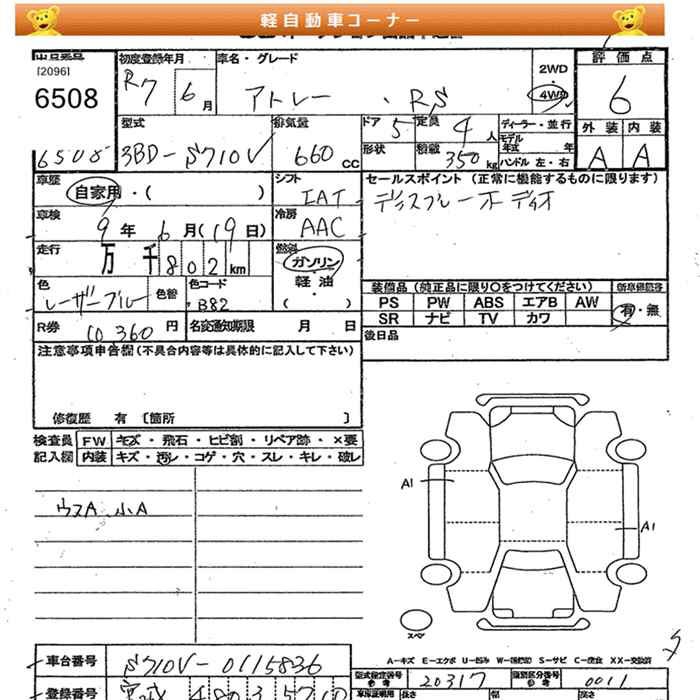 軽自動車コーナー
[2096]
6508
6508
初度登録年月
R7 6月
車名・グレード
アトレー ・ RS
2WD
4WD
評価点
6
外装 内装
A A
型式
3BD-S710V
排気量
660 cc
ドア 5
定員 4人
形状
積載 350 kg
ディーラー・並行
モデル年式 年
ハンドル 左・右
車歴
自家用・( )
シフト
IAT
セールスポイント (正常に機能するものに限ります)
ディスプレーオーディオ
車検
9年 6月(19日)
冷房
AAC
走行
万 千 802 km
燃料
ガソリン
軽・油
( )
色
レーザーブルー
色替
色コード
B82
装備品 (純正品に限り○をつけてください)
PS PW ABS エアB AW
SR ナビ TV カワ
有・無
R券
10360 円
名変通知期限 月 日
後日品
注意事項申告欄(不具合内容等は具体的に記入して下さい)
修復歴 有 〔箇所 〕
検査員記入欄
FW キズ・飛石・ヒビ割・リペア跡・×要
内装 キズ・汚レ・コゲ・穴・スレ・キレ・破レ
ウスA 小A
A1
A1
スペア
A-キズ E-エクボ U-凹み W-補修跡 S-サビ C-腐食 XX-交換済
車台番号
S710V-0115836
型式指定番号
20317
類別区分番号
0011
登録番号